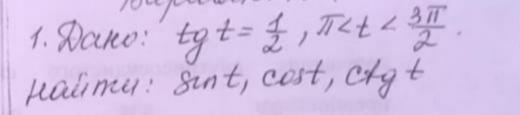 1. Дано: tg t = 1/2, π < t < 3π/2.
найти: sin t, cos t, ctg t